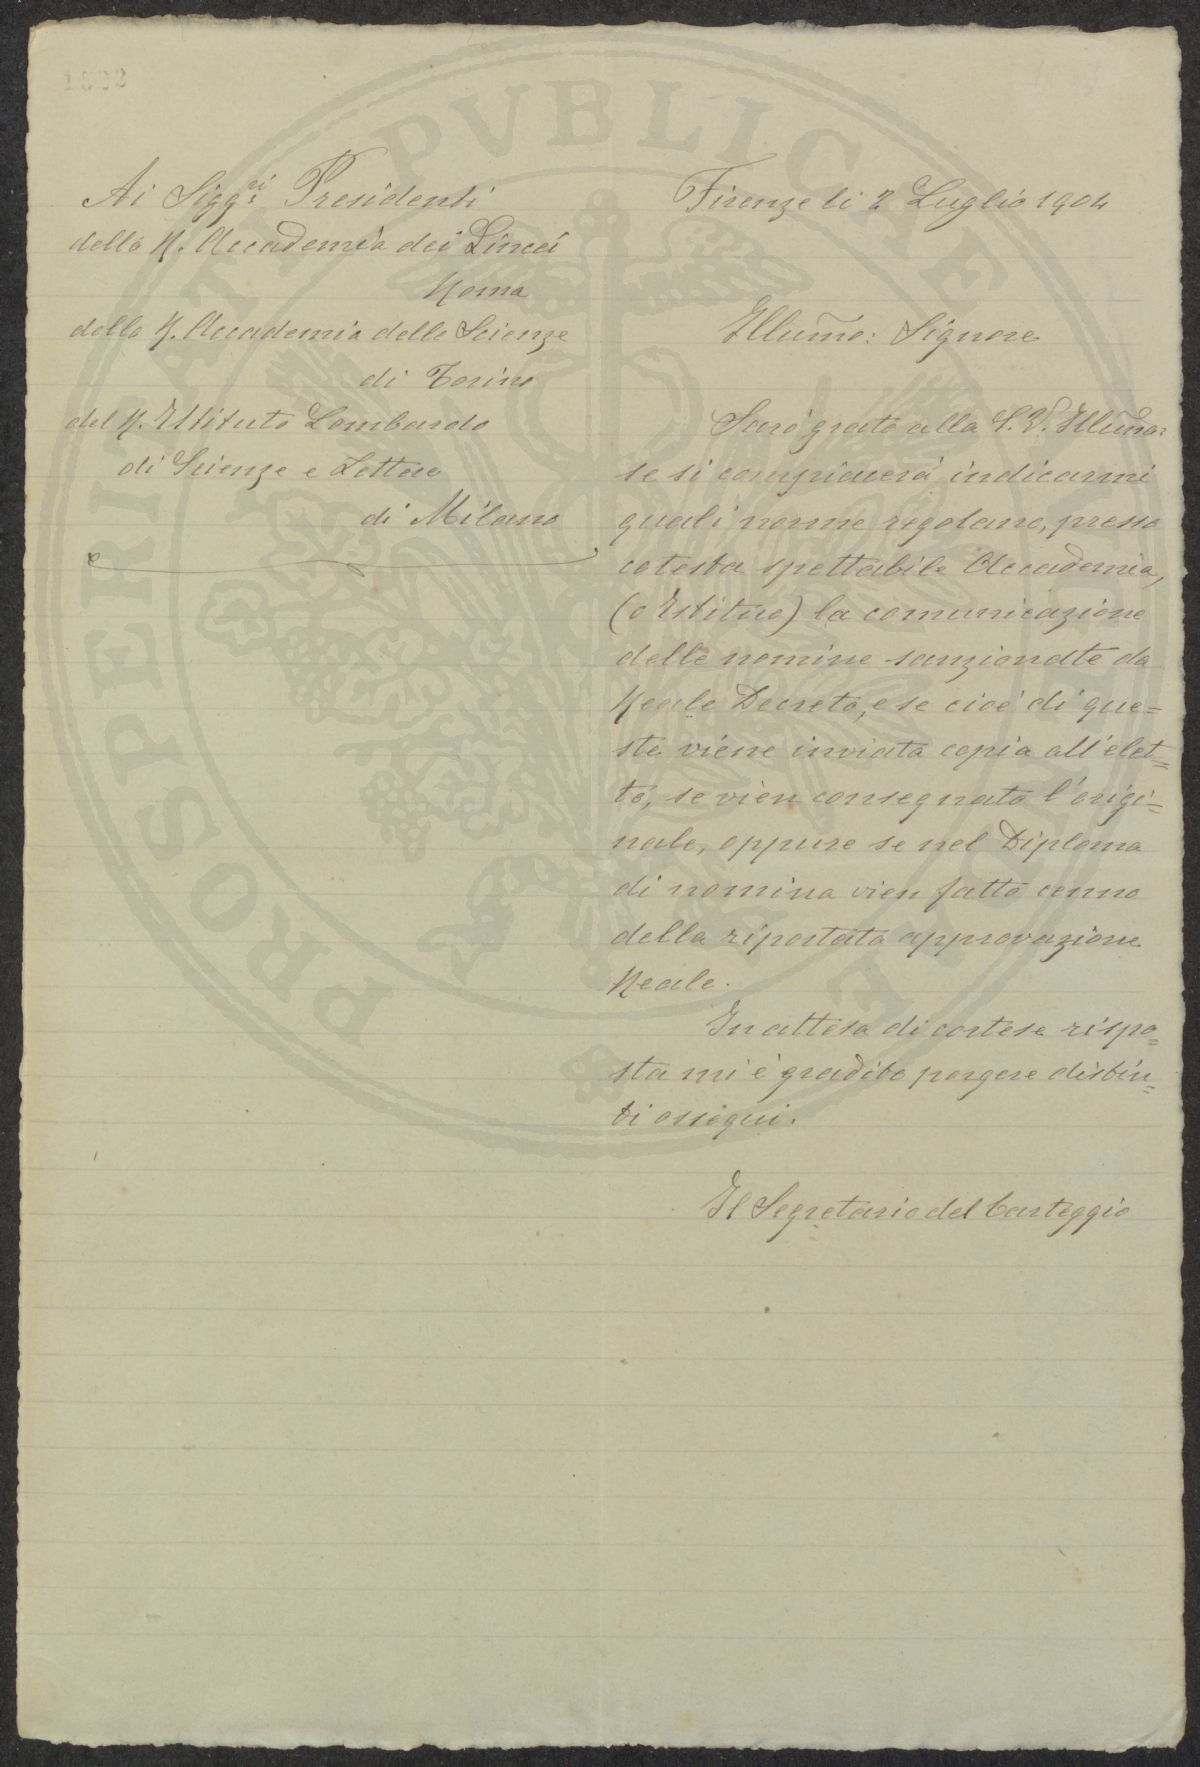 Ai Sigg.ri Presidenti
della R. Accademia dei Lincei
Roma
della R. Accademia delle Scienze
di Torino
del R. Istituto Lombardo
di Scienze e Lettere
di Milano
Firenze li 2 Luglio 1904
Illumo: Signore
Sarò grato alla S. V. Illuma:
se si compiacerà indicarmi
quali norme regolano, presso
cotesta spettabile Accademia,
(o Istituo) la comunicazione
delle nomine sanzionate da
Reale Decreto, e se cioè di que=
sto viene inviata copia all'elet=
to, se vien consegnato l'origi=
nale, oppure se nel Diploma
di nomina vien fatto cenno
della riportata approvazione
Reale.
In attesa di cortese rispo=
sta mi è gradito porgere distin=
ti ossequi.
Il Segretario del Carteggio
PROSPERITATI PVBLICAE